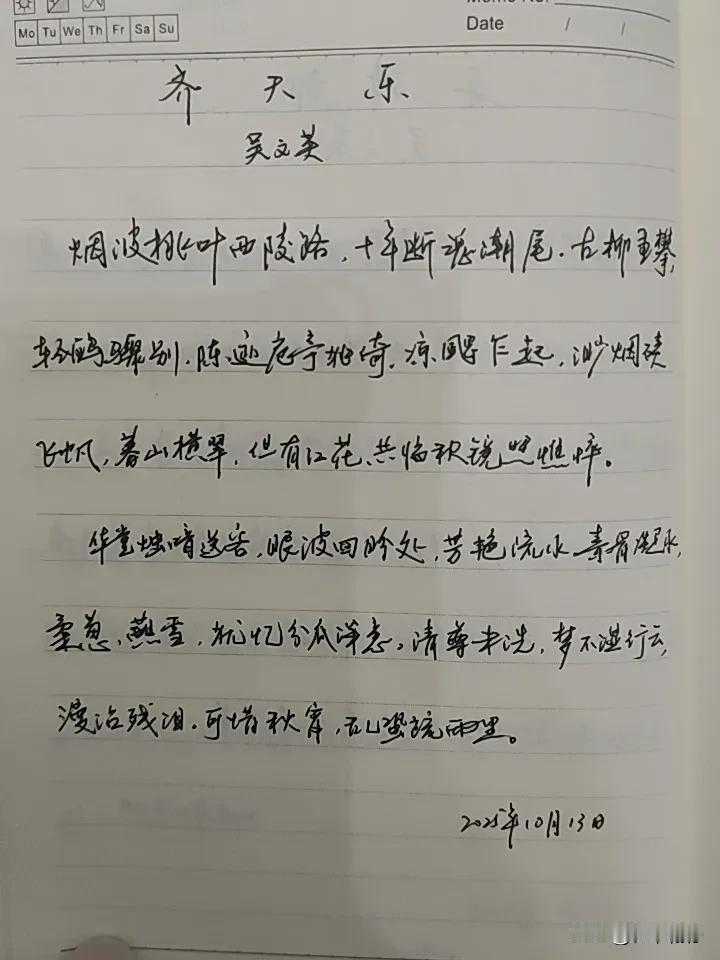 Mo Tu We Th Fr Sa Su
Memo No.
Date / /
齐天乐
吴文英
烟波桃叶西陵路，十年断魂潮尾。古柳重攀，
轻鸥骤别，陈迹危亭独倚。凉飔乍起，渺烟碛
飞帆，暮山横翠，但有江花，共临秋镜照憔悴。
华堂烛暗送客，眼波回盼处，芳艳流水，素骨凝冰，
柔葱蘸雪，犹忆分瓜深意。清尊未洗，梦不湿行云，
漫沾残泪。可惜秋宵，乱蛩疏雨里。
2025年10月13日